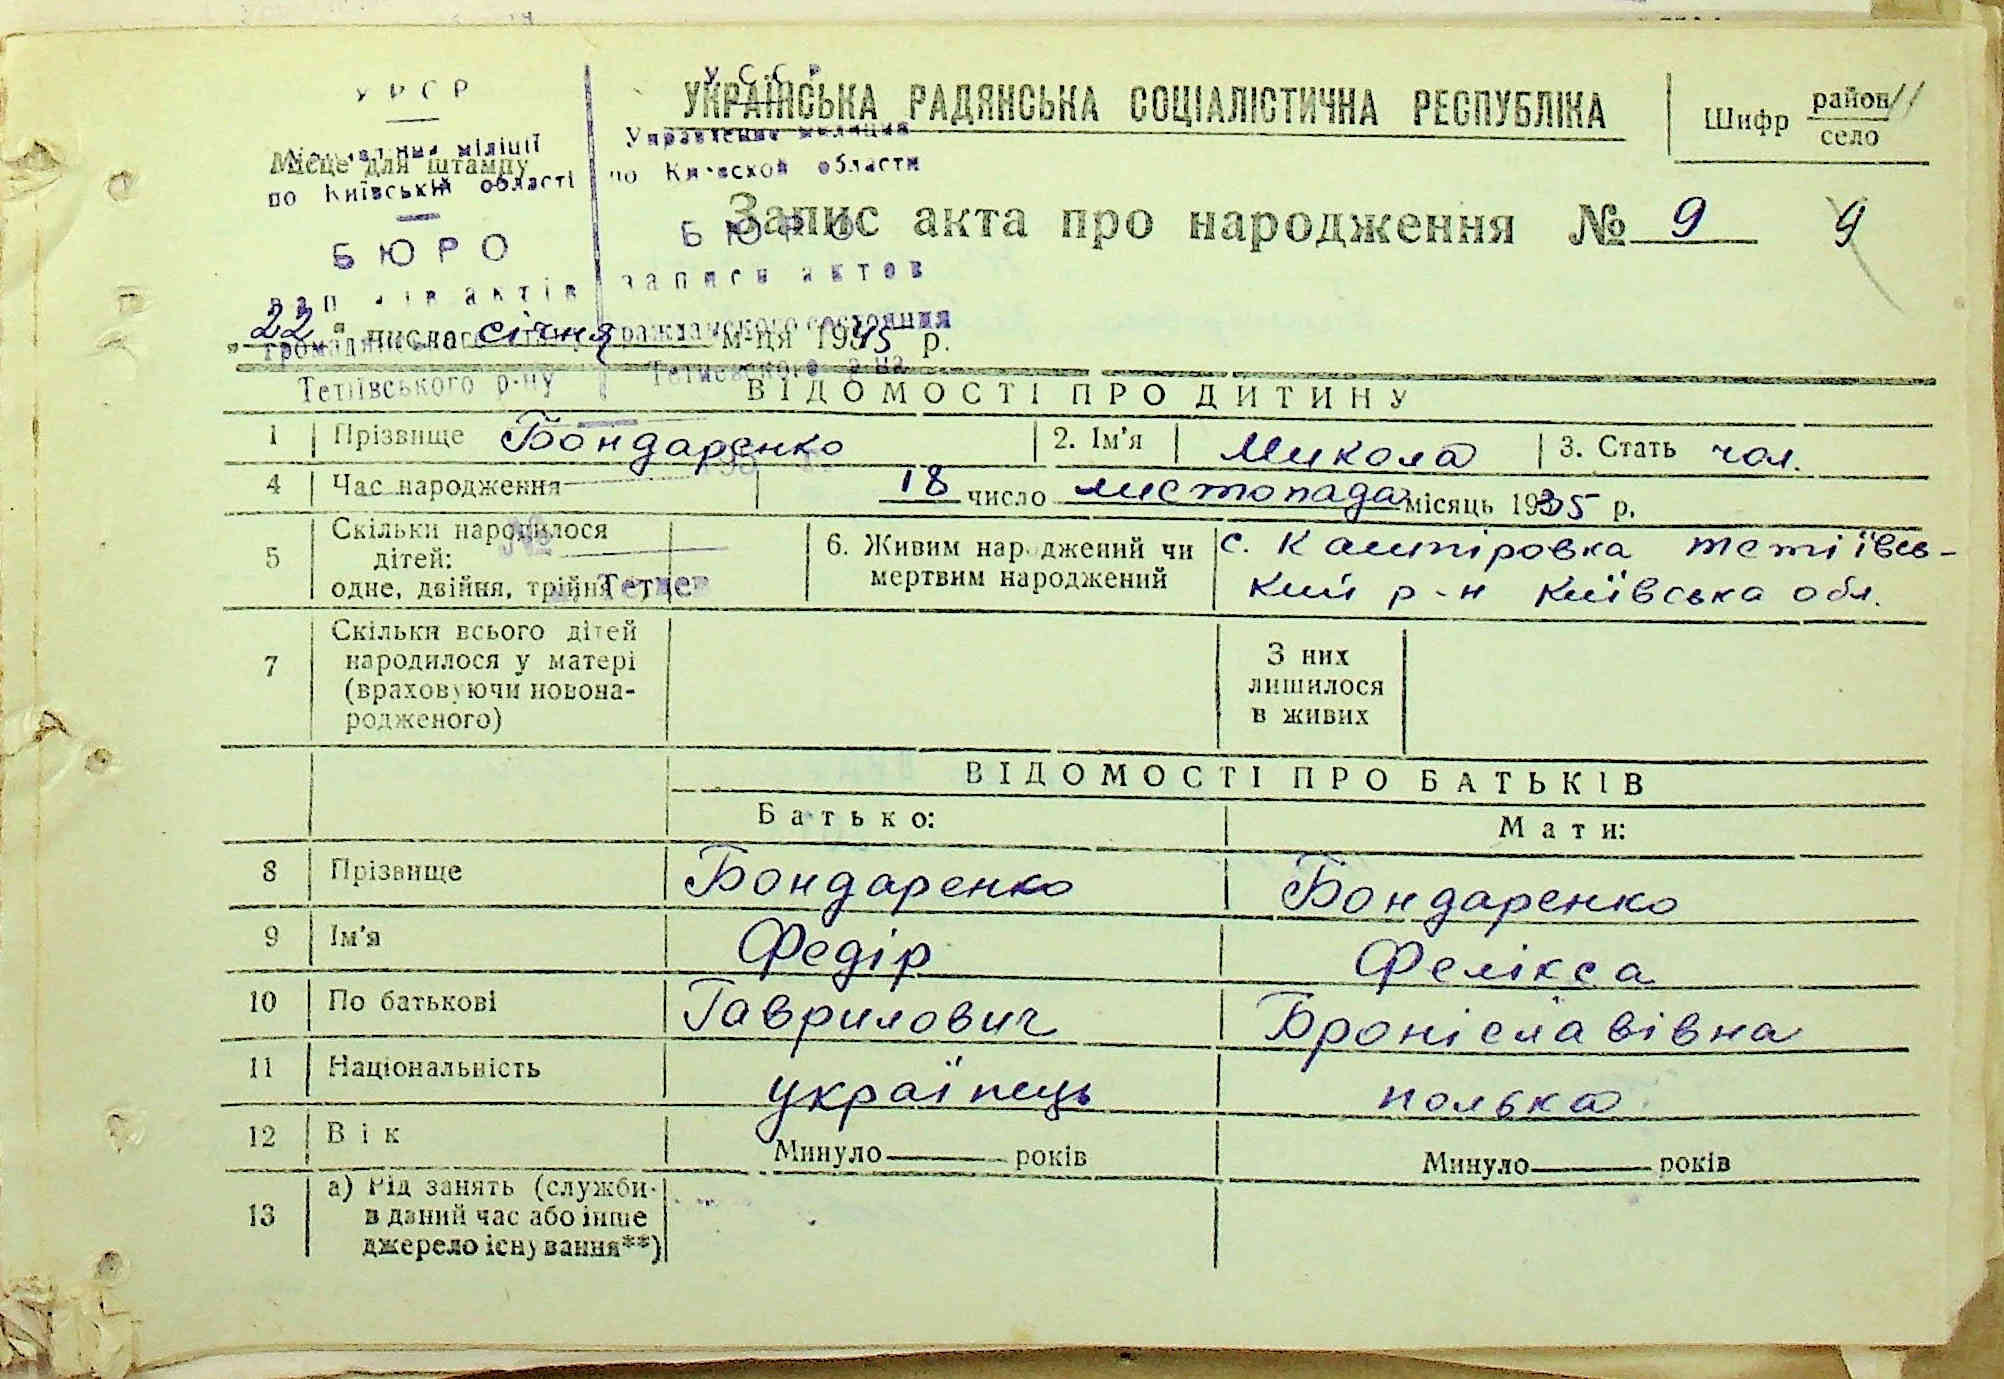 УРСР
УССР
УКРАЇНСЬКА РАДЯНСЬКА СОЦІАЛІСТИЧНА РЕСПУБЛІКА
Шифр район 11
село
Місце для штампу
міліції
по Київській області
Управление милиции
по Киевской области
Запис акта про народження № 9 9
БЮРО
записів актів
БЮРО
записи актов
гражданского состояния
„22" числа січня м-ця 1945 р.
Тетіївського р-ну
Тетиевского р-на
ВІДОМОСТІ ПРО ДИТИНУ
1 Прізвище Бондаренко 2. Ім'я Микола 3. Стать чол.
4 Час народження 18 число листопада місяць 1935 р.
5 Скільки народилося дітей: одне, двійня, трійня
№
Тетиев
6. Живим народжений чи мертвим народжений
с. Кашпіровка тетіївсь-
кий р-н Київська обл.
7 Скільки всього дітей народилося у матері (враховуючи новона-родженого)
З них лишилося в живих
ВІДОМОСТІ ПРО БАТЬКІВ
Батько: Мати:
8 Прізвище Бондаренко Бондаренко
9 Ім'я Федір Фелікса
10 По батькові Гаврилович Броніславівна
11 Національність українець полька
12 Вік Минуло років Минуло років
13 а) Рід занять (служби
в даний час або інше
джерело існування**)